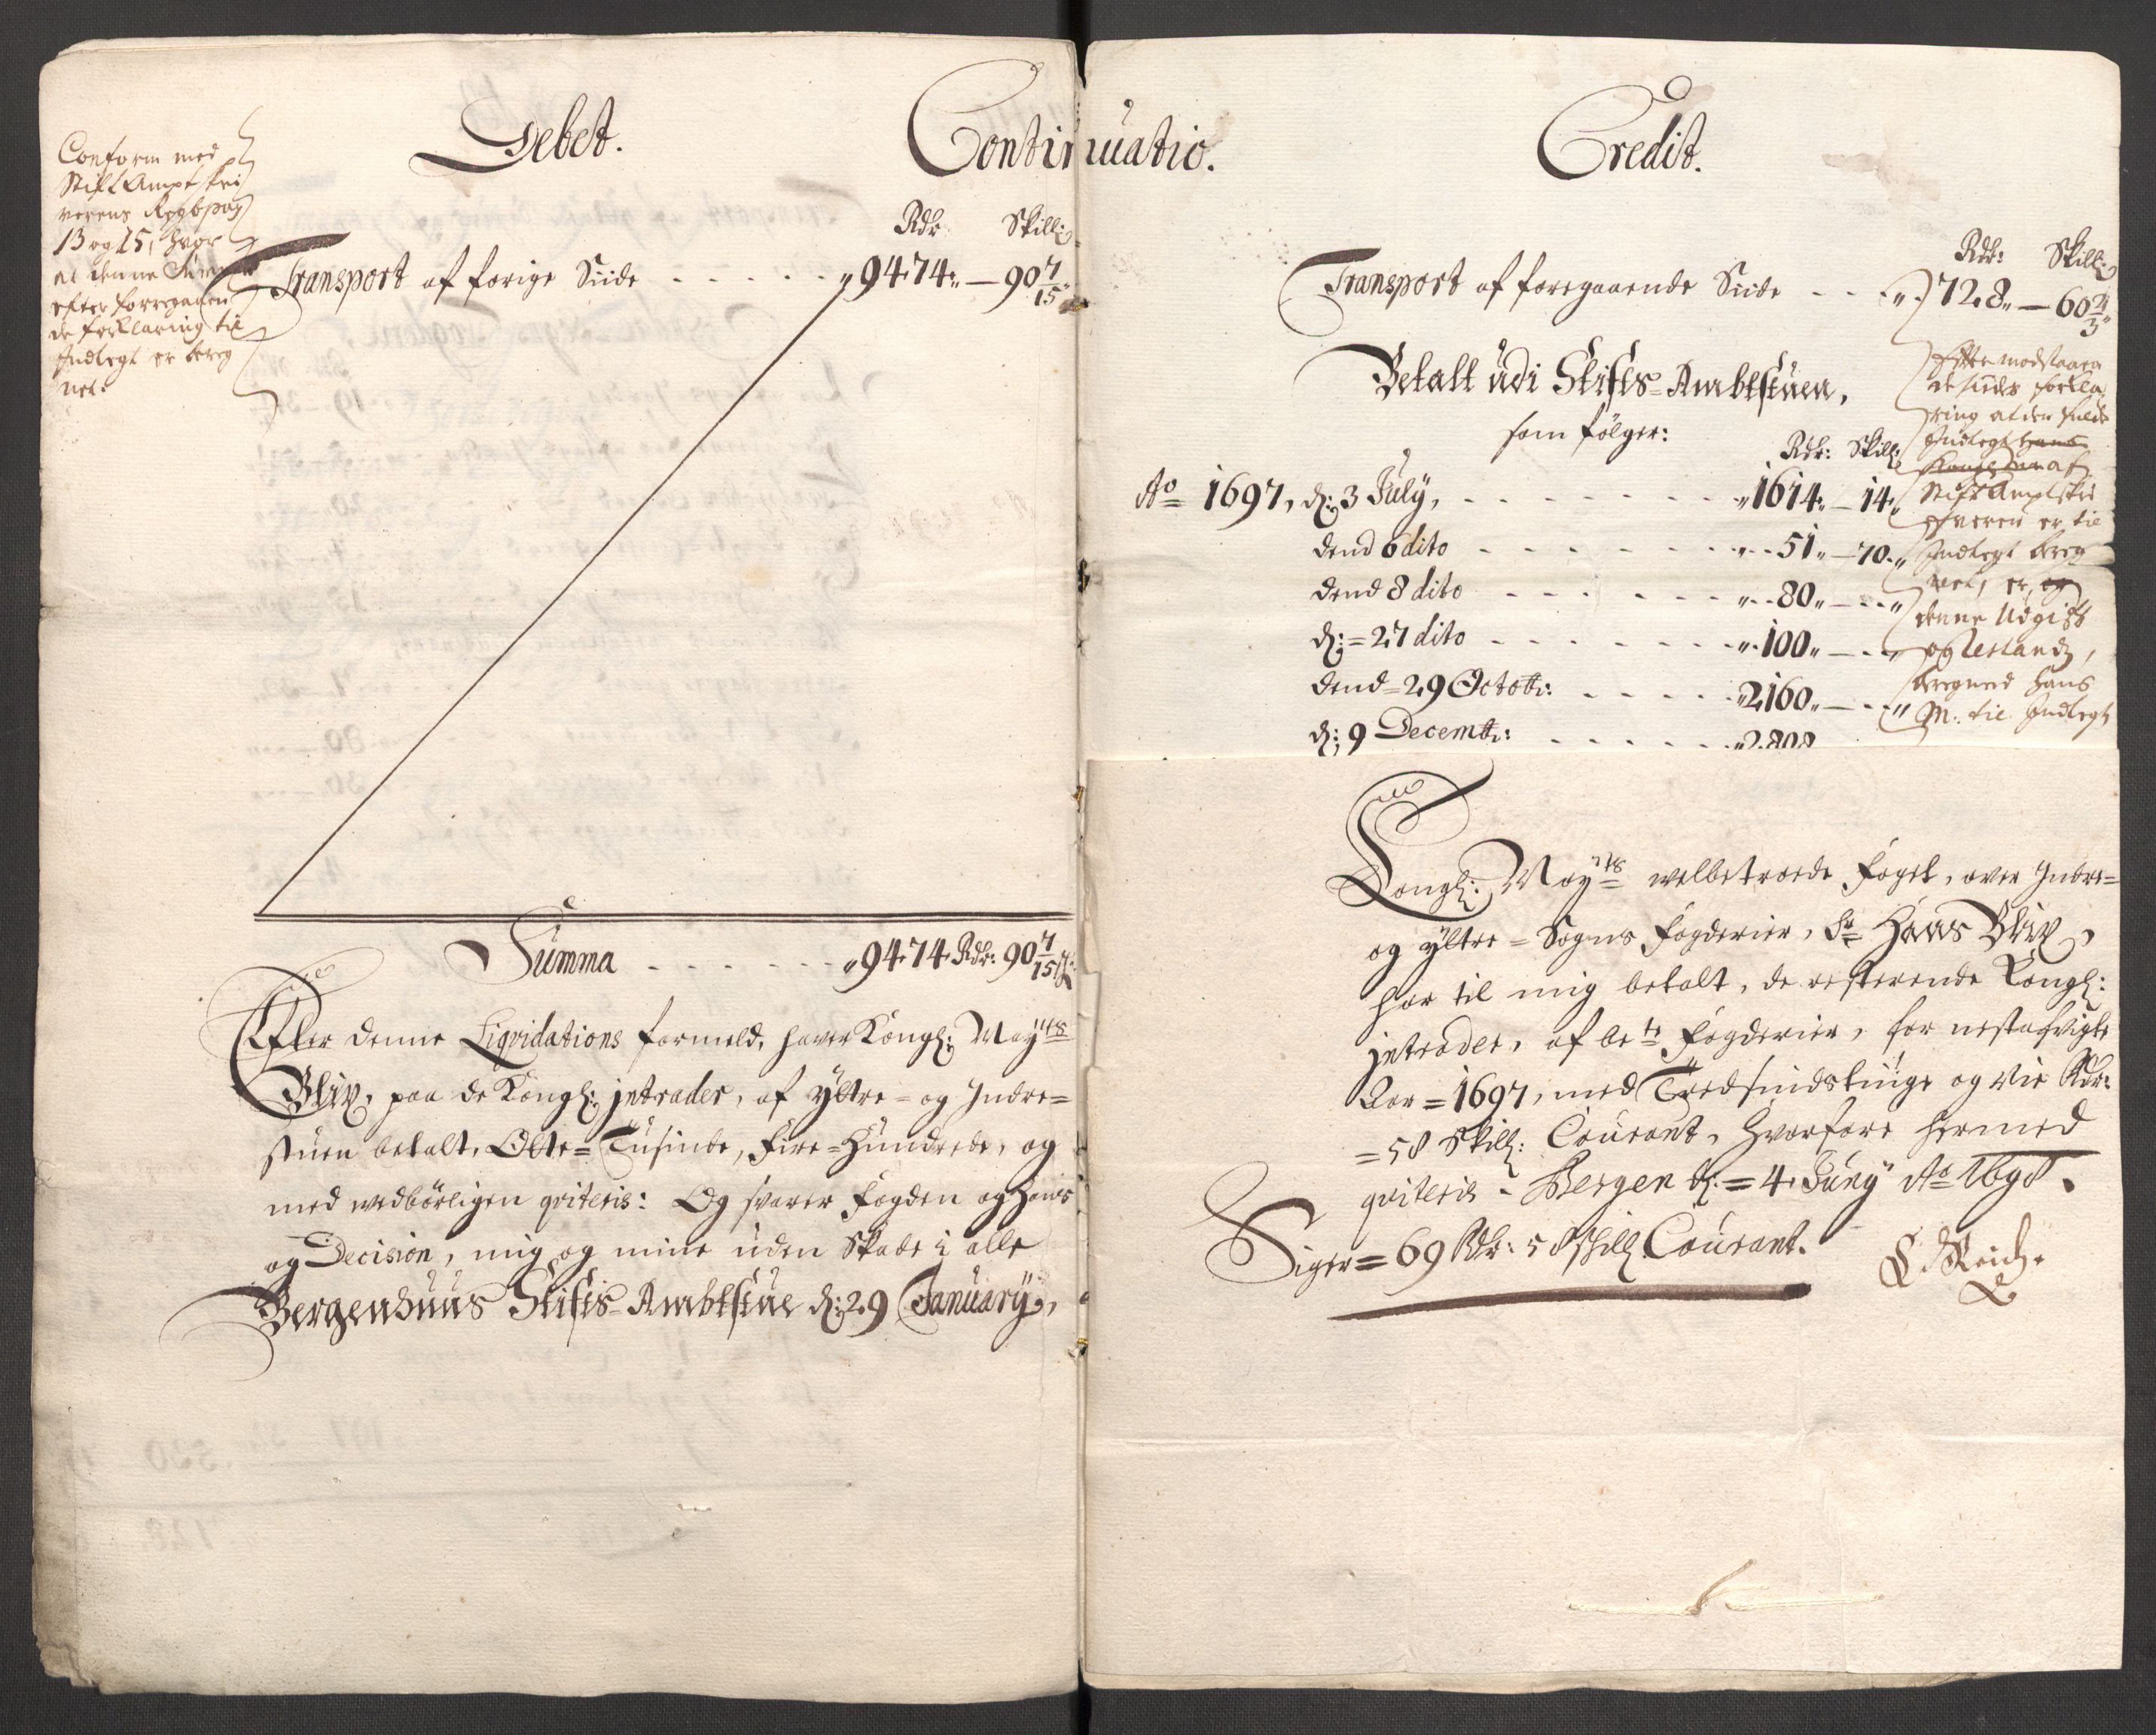 Debet.
Continuatio.
Credit.
Conform med
Stift Ampt skri
verens Regb pag
13 og 15, hvor
at denne Summa
efter forregaaen
de forklaring til
Indtegt er bereg
net.
Rdr Skill:
Transport af forige Siide - - - - - - „9474„ — 90 7/15„
Summa - - - - - - - „9474 Rdr: 90 7/15 s:
Efter denne Liqvidations formeld, haver Kongl: Mayts
Blix, paa de Kongl: jntrader, af Yttre= og Indre=
stuen betalt, Otte= Tusinde, Fire= Hundrede, og
med vedbørligen qviteris: Og svarer Fogden og hans
og Decision, mig og mine uden Skade i alle
Bergenhuus Stifts= Ambtstue d: 29 January,
Rdr: Skill:
Transport af foregaaende Siide - - - „ 728„ — 60 2/3„
Betalt udi Stifts= Ambtstuen,
som følger:
Rdr: Skill:
Ao 1697, d: 3 July, - - - - - - - „1614„ — 14„
dend 6 dito - - - - - - - „ - 51„ — 70„
dend 8 dito - - - - - - „ - 80„ — - - „
d: = 27 dito - - - - - - - „ 100„ — - - „
dend = 29 Octobr: - - - - - „2160„ — - - „
d: 9 Decembr: - - - - - - „2808
Efter modstaaen
de siides forkla
ring at den fulde
Indtegt hans
af
Stift Amptskri
fveren er til
Indtegt bereg
net, er, og
denne Udgift
og Restands,
beregned hans
M: til Indtegt
Kongl: Mayts velbetroede Foget, over Indre=
og Yttre= Sogns Fogderier, Sr Hans Blix,
har til mig betalt, de resterende Kongl:
jntrader, af bete Fogderier, for nestafvigte
Aar = 1697, med Tredsindstiuge og Nie Rdr:
= 58 Skill: Courant, hvorfore hermed
qviteris. Bergen d: = 4 Juny Ao 1698.
Siger = 69 Rdr: 58 skill Courant.